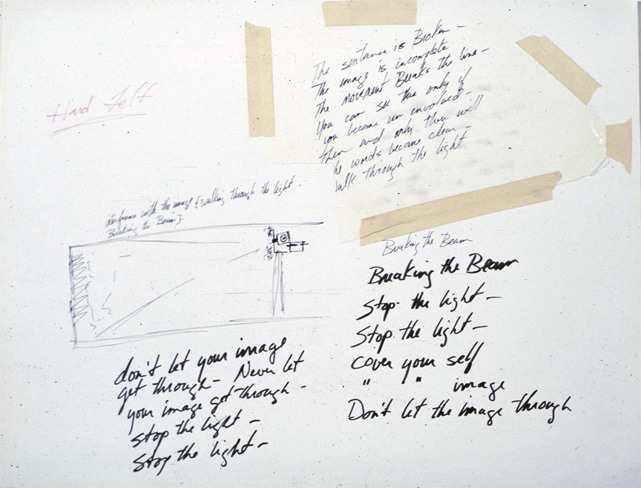 Hard Felt
The sentence is Broken —
The image is incomplete
The movement Breaks the line —
You can see this only if
you become un involved —
then and only then will
he words become clear —
walk through the light
interference with the image [walking through the light —
Breaking the Beam]
Breaking the Beam
Breaking the Beam
Stop the light —
Stop the light —
cover your self
" " image
Don't let the image through
don't let your image
get through — Never let
your image get through —
stop the light —
stop the light —